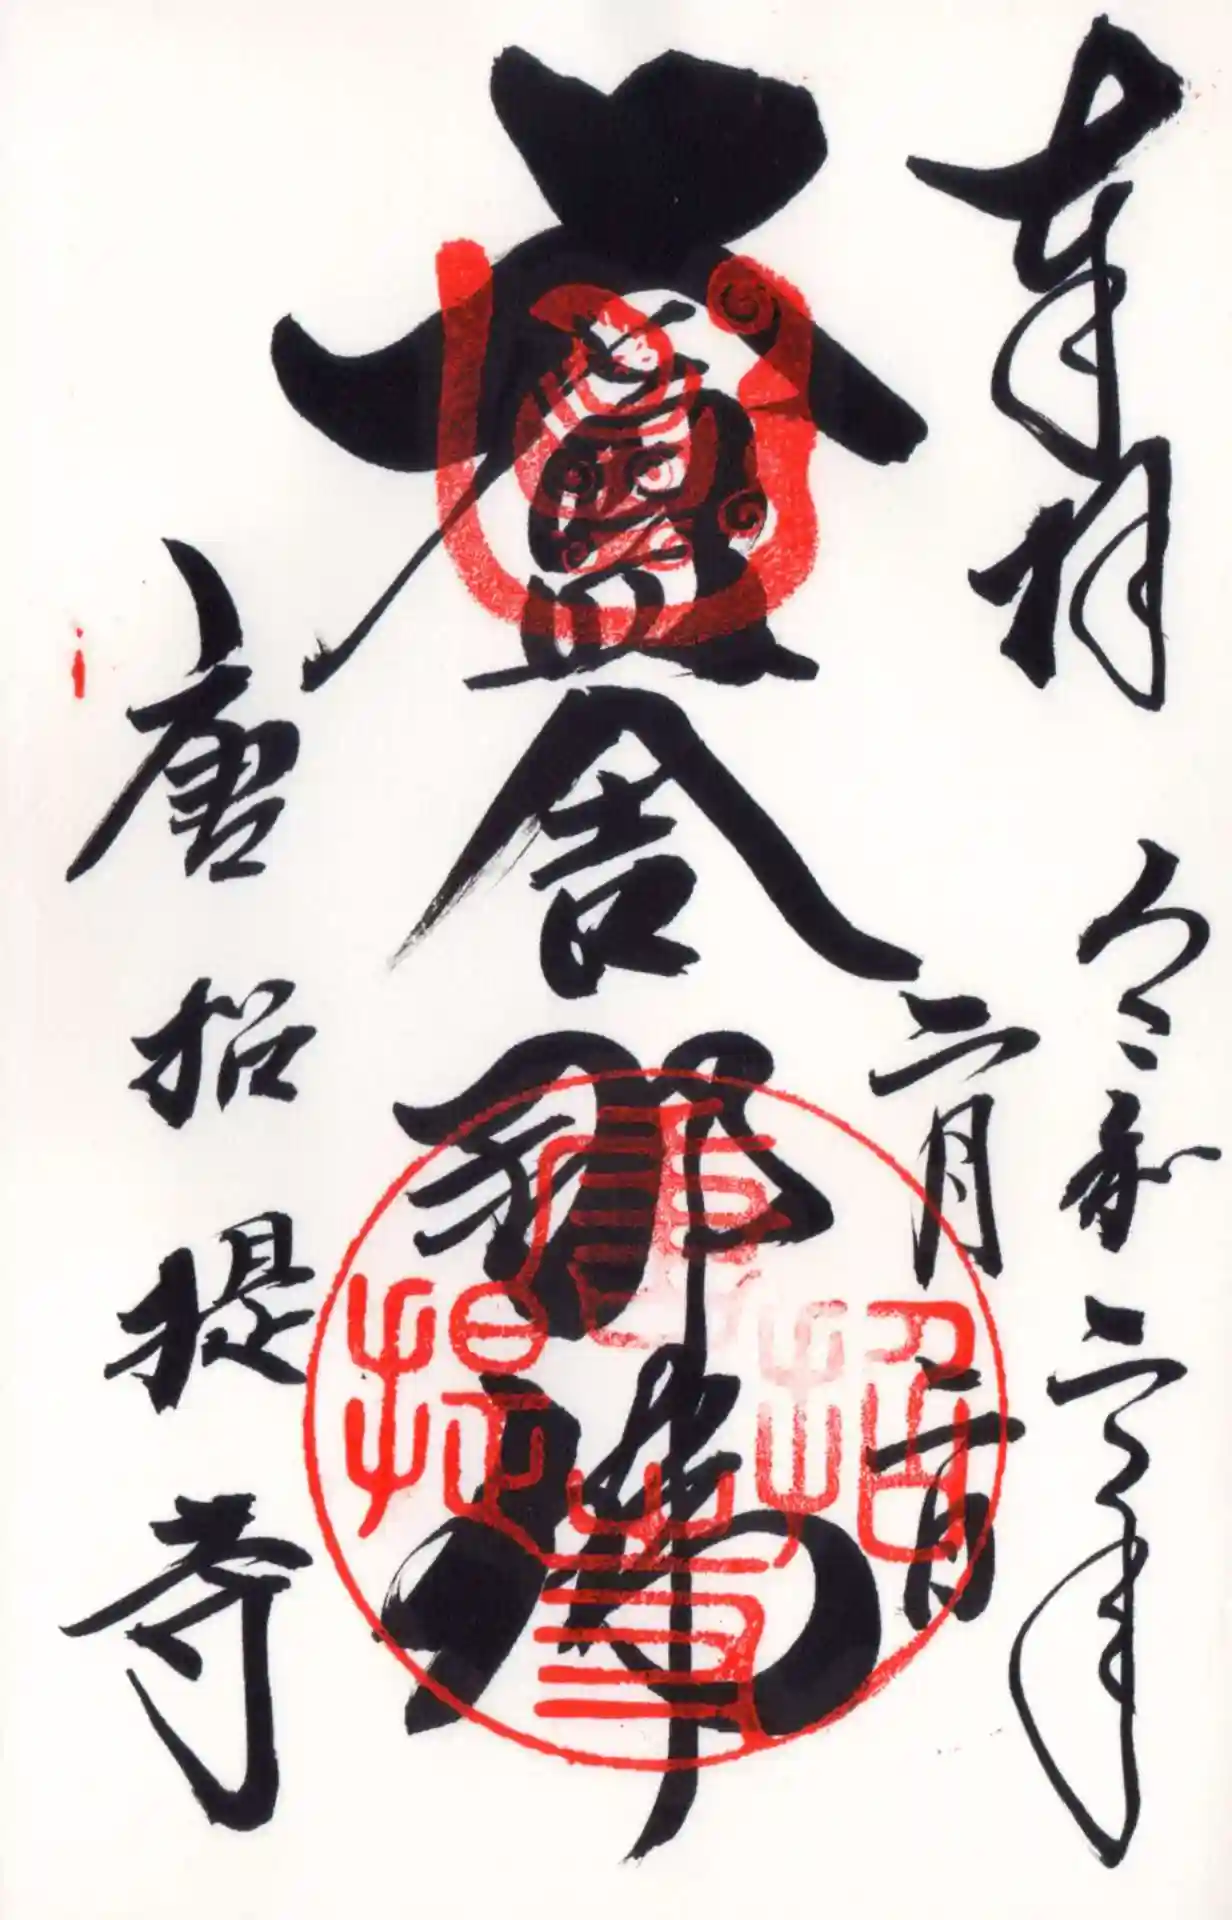 奉拝 令和二年
二月二日
盧舎那佛
唐招提寺
唐招提寺